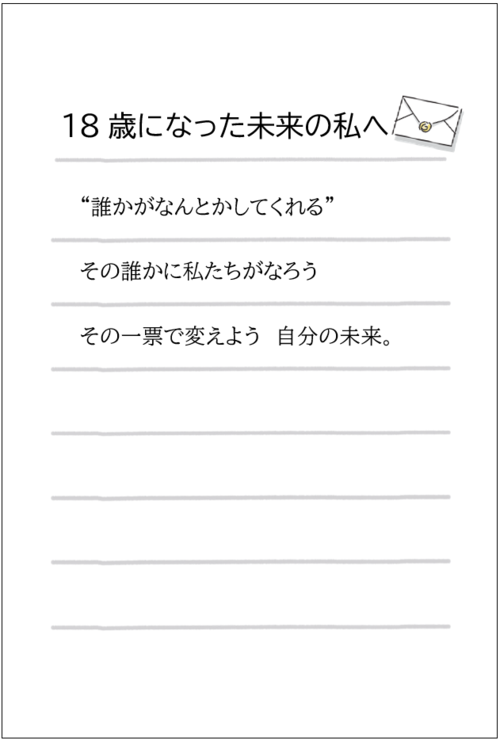 18歳になった未来の私へ
“誰かがなんとかしてくれる”
その誰かに私たちがなろう
その一票で変えよう　自分の未来。